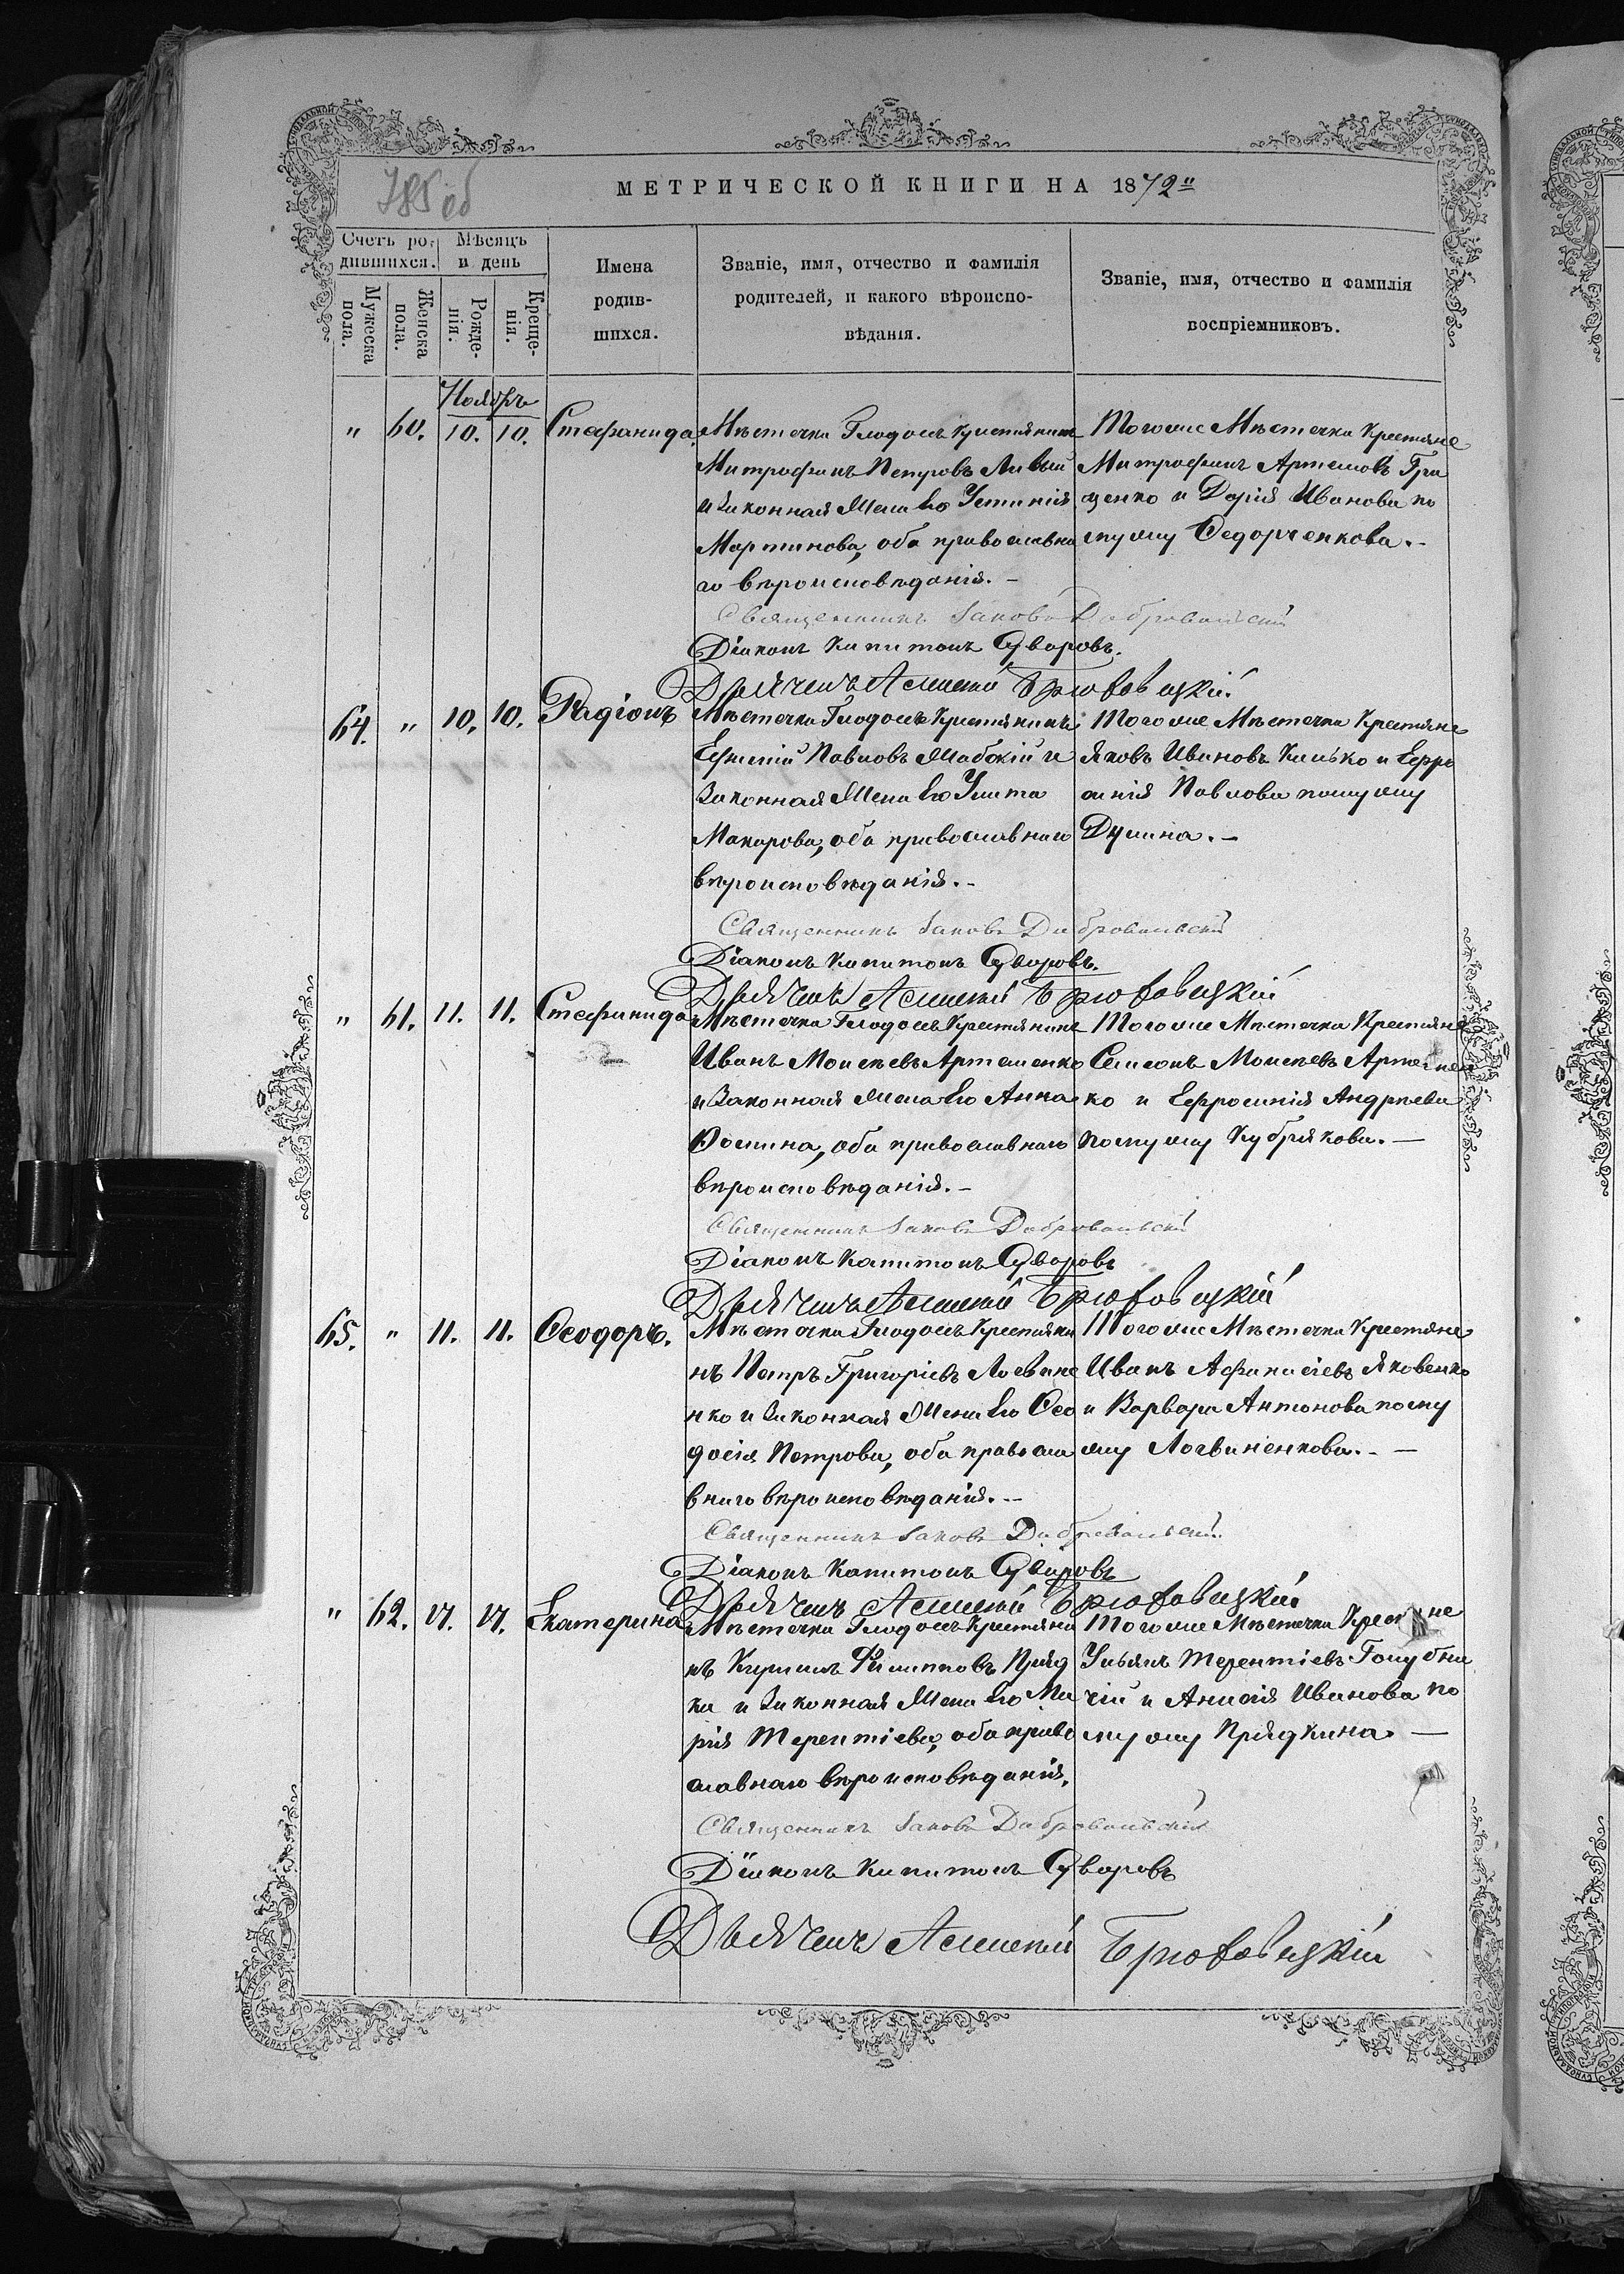 785 об
МЕТРИЧЕСКОЙ КНИГИ НА 1872
Счетъ родившихся.
Мѣсяцъ и день
Мужеска пола.
Женска пола.
Рожденія.
Крещенія.
Имена родившихся.
Званіе, имя, отчество и фамилія
родителей, и какого вѣроиспо-
вѣданія.
Званіе, имя, отчество и фамилія
воспріемниковъ.
Ноябрь
" 60. 10. 10. Стефанида.
Мѣстечка Глодосъ крестьянинъ
Митрофанъ Петровъ Ливый
и законная жена его Устинія
Мартинова, оба православна
го вѣроисповѣданія. –
Тогоже Мѣстечка Крестьяне
Митрофанъ Артемовъ Гри
ценко и Дарія Иванова по
мужу Федорченкова. –
Священникъ Іаковъ Добровольскій
Діаконъ Капитонъ Суворовъ.
Дьячекъ Алексій Брюховецкій.
64. " 10. 10. Радіонъ
Мѣстечка Глодосъ Крестьянинъ
Евменій Павловъ Жабскій и
Законная Жена его Улита
Макарова, оба православнаго
вѣроисповѣданія. –
Тогоже Мѣстечка Крестьяне
Яковъ Ивановъ Калько и Евфро
синія Павлова помужу
Думина. –
Священникъ Іаковъ Добровольскій
Діаконъ Капитонъ Суворовъ.
Дьячекъ Алексій Брюховецкій
" 61. 11. 11. Стефанида
Мѣстечка Глодосъ Крестьянинъ
Иванъ Моисѣевъ Артеменко
и Законная Жена его Анна
Фомина, оба православнаго
вѣроисповѣданія. –
Тогоже Мѣстечка Крестьяне
Семеонъ Моисѣевъ Артемен
ко и Ефросинія Андрѣева
помужу Кубрякова. –
Священникъ Іаковъ Добровольскій
Діаконъ Капитонъ Суворовъ
Дьячекъ Алексій Брюховецкій
65. " 11. 11. Феодоръ.
Мѣстечка Глодосъ Крестьяни
нъ Петръ Григоріевъ Логвине
нко и законная Жена его Фео
досія Петрова, оба правосла
внаго вѣроисповѣданія. –
Тогоже Мѣстечка Крестьяне
Иванъ Афанасіевъ Яковенко
и Варвара Антонова пому
жу Логвиненкова. –
Священникъ Іаковъ Добровольскій
Діаконъ Капитонъ Суворовъ
Дьячекъ Алексій Брюховецкій
" 62. 17. 17. Екатерина
Мѣстечка Глодосъ Крестьяни
нъ Кирилъ Филиповъ Пряд
ка и законная Жена его Ма
рія Терентіева, оба право
славнаго вѣроисповѣданія.
Тогоже Мѣстечка Крестьяне
Ульянъ Терентіевъ Голубни
чій и Анисія Иванова по
мужу Прядкина –
Священникъ Іаковъ Добровольскій
Діаконъ Капитонъ Суворовъ
Дьячекъ Алексій Брюховецкій